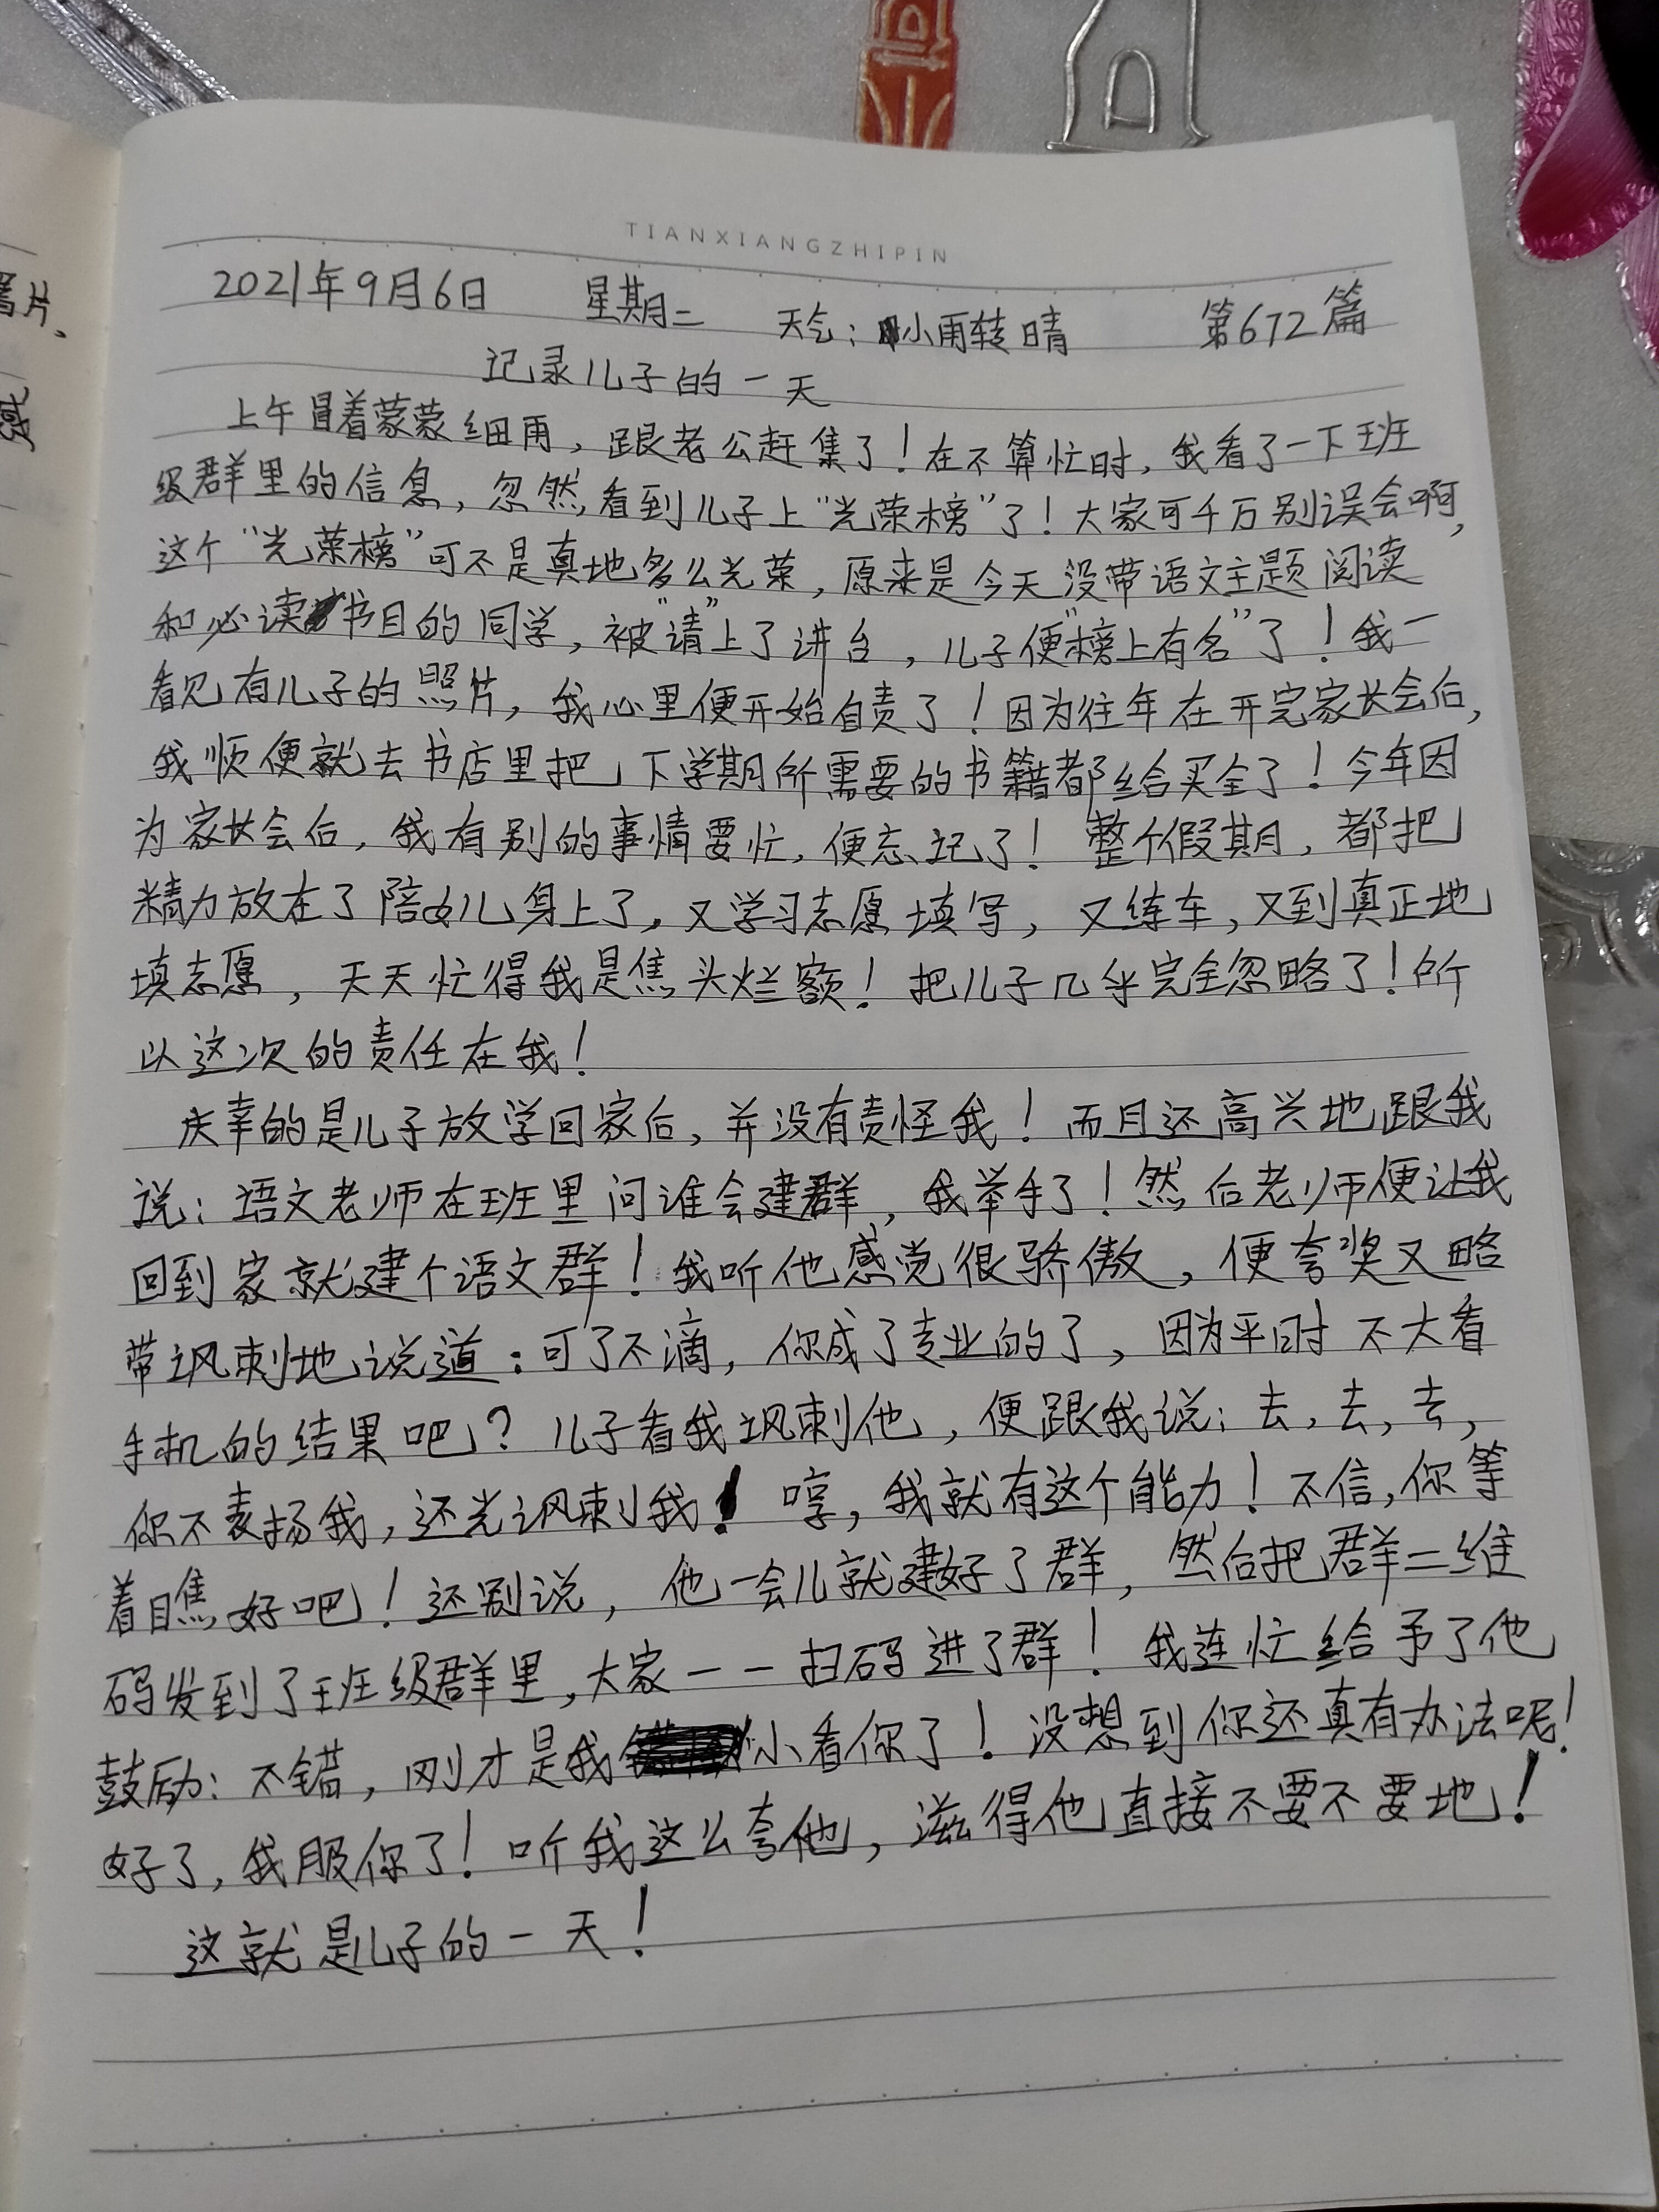 TIANXIANGZHIPIN
2021年9月6日 星期二 天气:小雨转晴 第672篇
记录儿子的一天
上午冒着蒙蒙细雨,跟老公赶集了!在不算忙时,我看了一下班
级群里的信息,忽然看到儿子上“光荣榜”了!大家可千万别误会啊,
这个“光荣榜”可不是真地多么光荣,原来是今天没带语文主题阅读
和必读书目的同学,被“请”上了讲台,儿子便“榜上有名”了!我一
看见有儿子的照片,我心里便开始自责了!因为往年在开完家长会后,
我顺便就去书店里把下学期所需要的书籍都给买全了!今年因
为家长会后,我有别的事情要忙,便忘记了!整个假期,都把
精力放在了陪女儿身上了,又学习志愿填写,又练车,又到真正地
填志愿,天天忙得我是焦头烂额!把儿子几乎完全忽略了!所
以这次的责任在我!
庆幸的是儿子放学回家后,并没有责怪我!而且还高兴地跟我
说:语文老师在班里问谁会建群,我举手了!然后老师便让我
回到家就建个语文群!我听他感觉很骄傲,便夸奖又略
带讽刺地说道:可了不滴,你成了专业的了,因为平时不大看
手机的结果吧?儿子看我讽刺他,便跟我说:去,去,去,
你不表扬我,还光讽刺我!哼,我就有这个能力!不信,你等
着瞧好吧!还别说,他一会儿就建好了群,然后把群二维
码发到了班级群里,大家一一扫码进了群!我连忙给予了他
鼓励:不错,刚才是我小看你了!没想到你还真有办法呢!
好了,我服你了!听我这么夸他,滋得他直接不要不要地!
这就是儿子的一天!
片、
感